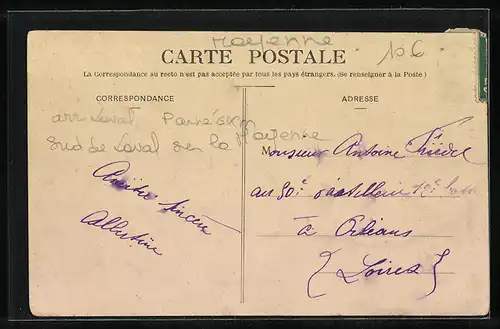 Mayenne
106
CARTE POSTALE
La Correspondance au recto n'est pas acceptée par tous les pays étrangers. (Se renseigner à la Poste.)
CORRESPONDANCE
ADRESSE
arr Laval Parné 9KM
Sud de Laval sur la Mayenne
Monsieur Antoine
au 30e d'artillerie 10e
à Orléans
(Loiret)
Amitié sincère
Albertine